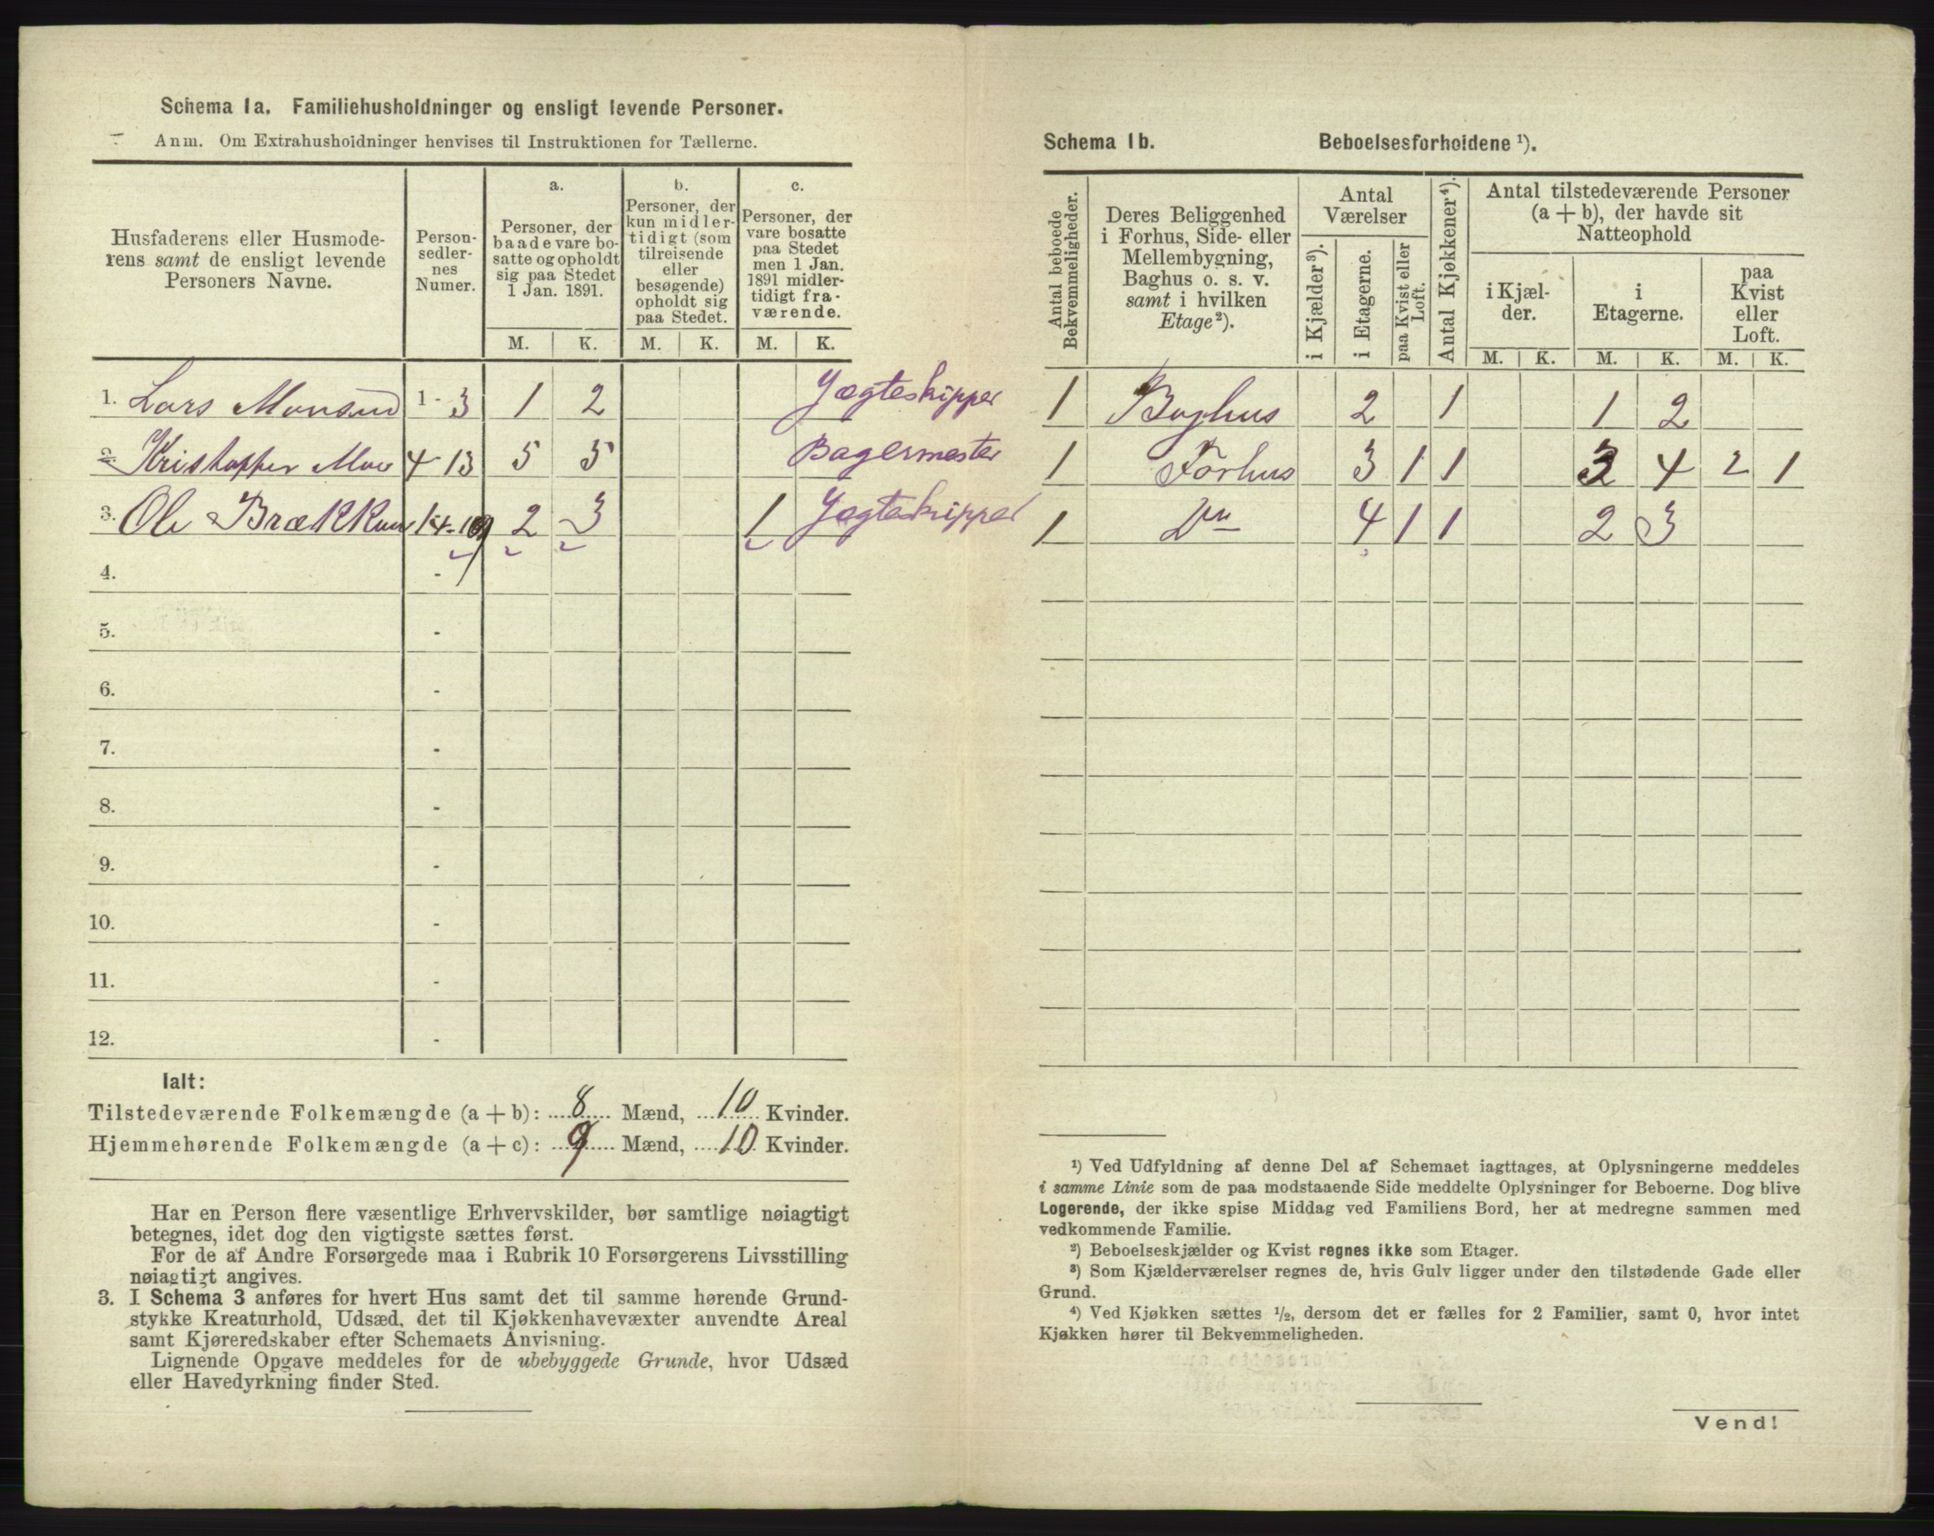 Schema 1a. Familiehusholdninger og ensligt levende Personer.
Anm. Om Extrahusholdninger henvises til Instruktionen for Tællerne.
Husfaderens eller Husmode-
rens samt de ensligt levende
Personers Navne.
Person-
sedler-
nes
Numer.
a.
Personer, der
baade vare bo-
satte og opholdt
sig paa Stedet
1 Jan. 1891.
b.
Personer, der
kun midler-
tidigt (som
tilreisende
eller
besøgende)
opholdt sig
paa Stedet.
c.
Personer, der
vare bosatte
paa Stedet
men 1 Jan.
1891 midler-
tidigt fra-
værende.
M. K. M. K. M. K.
1. Lars Monsen 1 - 3 1 2 Jægteskipper
2. Kristoffer Moe 4 - 13 5 5 Bagermester
3. Ole Brækkan 14 - 19 2 3 1 Jægteskipper
4. -
5. -
6. -
7. -
8. -
9. -
10. -
11. -
12. -
Ialt:
Tilstedeværende Folkemængde (a + b): 8 Mænd, 10 Kvinder.
Hjemmehørende Folkemængde (a + c): 9 Mænd, 10 Kvinder.
Har en Person flere væsentlige Erhvervskilder, bør samtlige nøiagtigt
betegnes, idet dog den vigtigste sættes først.
For de af Andre Forsørgede maa i Rubrik 10 Forsørgerens Livsstilling
nøiagtigt angives.
3. I Schema 3 anføres for hvert Hus samt det til samme hørende Grund-
stykke Kreaturhold, Udsæd, det til Kjøkkenhavevæxter anvendte Areal
samt Kjøreredskaber efter Schemaets Anvisning.
Lignende Opgave meddeles for de ubebyggede Grunde, hvor Udsæd
eller Havedyrkning finder Sted.
Schema 1b. Beboelsesforholdene ¹).
Antal beboede
Bekvemmeligheder.
Deres Beliggenhed
i Forhus, Side- eller
Mellembygning,
Baghus o. s. v.
samt i hvilken
Etage²).
Antal
Værelser
i Kjælder³).
i Etagerne.
paa Kvist eller
Loft.
Antal Kjøkkener⁴).
Antal tilstedeværende Personer
(a + b), der havde sit
Natteophold
i Kjæl-
der.
i
Etagerne.
paa
Kvist
eller
Loft.
M. K. M. K. M. K.
1 Baghus 2 1 1 2
1 Forhus 3 1 1 3 4 2 1
1 Do 4 1 1 2 3
¹) Ved Udfyldning af denne Del af Schemaet iagttages, at Oplysningerne meddeles
i samme Linie som de paa modstaaende Side meddelte Oplysninger for Beboerne. Dog blive
Logerende, der ikke spise Middag ved Familiens Bord, her at medregne sammen med
vedkommende Familie.
²) Beboelseskjælder og Kvist regnes ikke som Etager.
³) Som Kjælderværelser regnes de, hvis Gulv ligger under den tilstødende Gade eller
Grund.
⁴) Ved Kjøkken sættes ½, dersom det er fælles for 2 Familier, samt 0, hvor intet
Kjøkken hører til Bekvemmeligheden.
Vend!